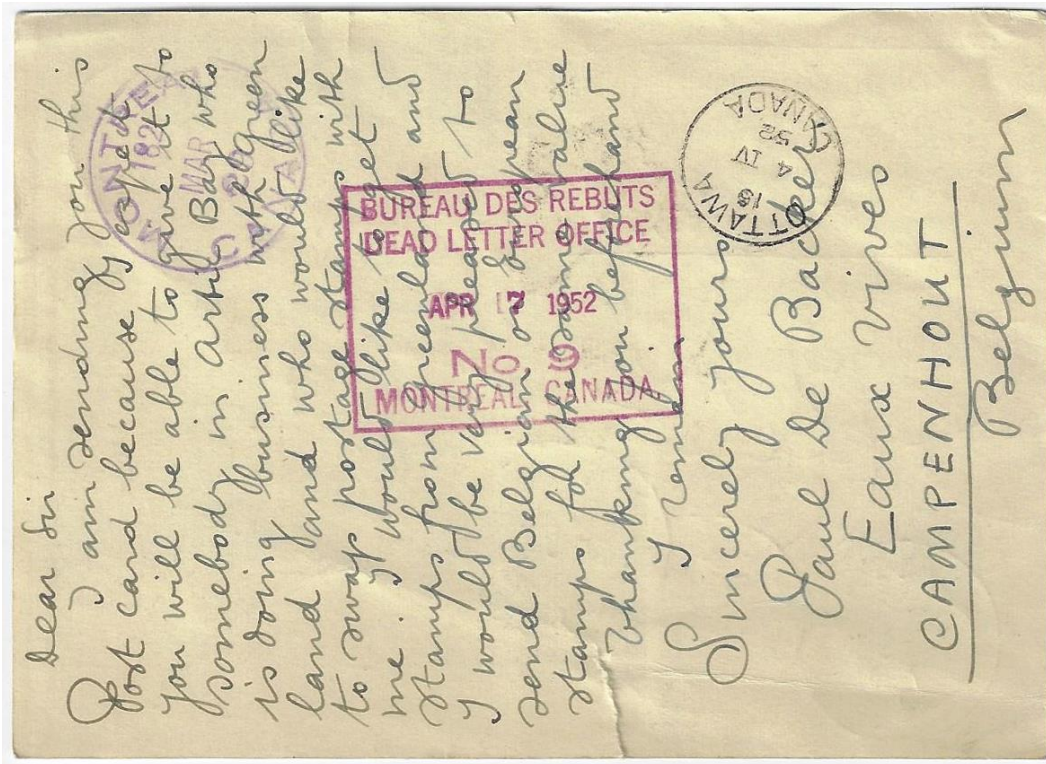 Dear Sir
I am sending you this
Post card because I expect
you will be able to give it to
somebody in Artic Bay who
is doing business with green
land and who would like
to swap postage stamps with
me. I would like to get
stamps from greenland and
I would be very pleased to
send Belgian or European
stamps for the same value
Thanking you beforehand
I remain
Sincerely yours
Paul De Backer
Eaux Vives
CAMPENHOUT
Belgium
MONTREAL
182
MAR
26
CANADA
BUREAU DES REBUTS
DEAD LETTER OFFICE
APR 17 1952
No 9
MONTREAL CANADA
OTTAWA
18
4 IV
52
CANADA